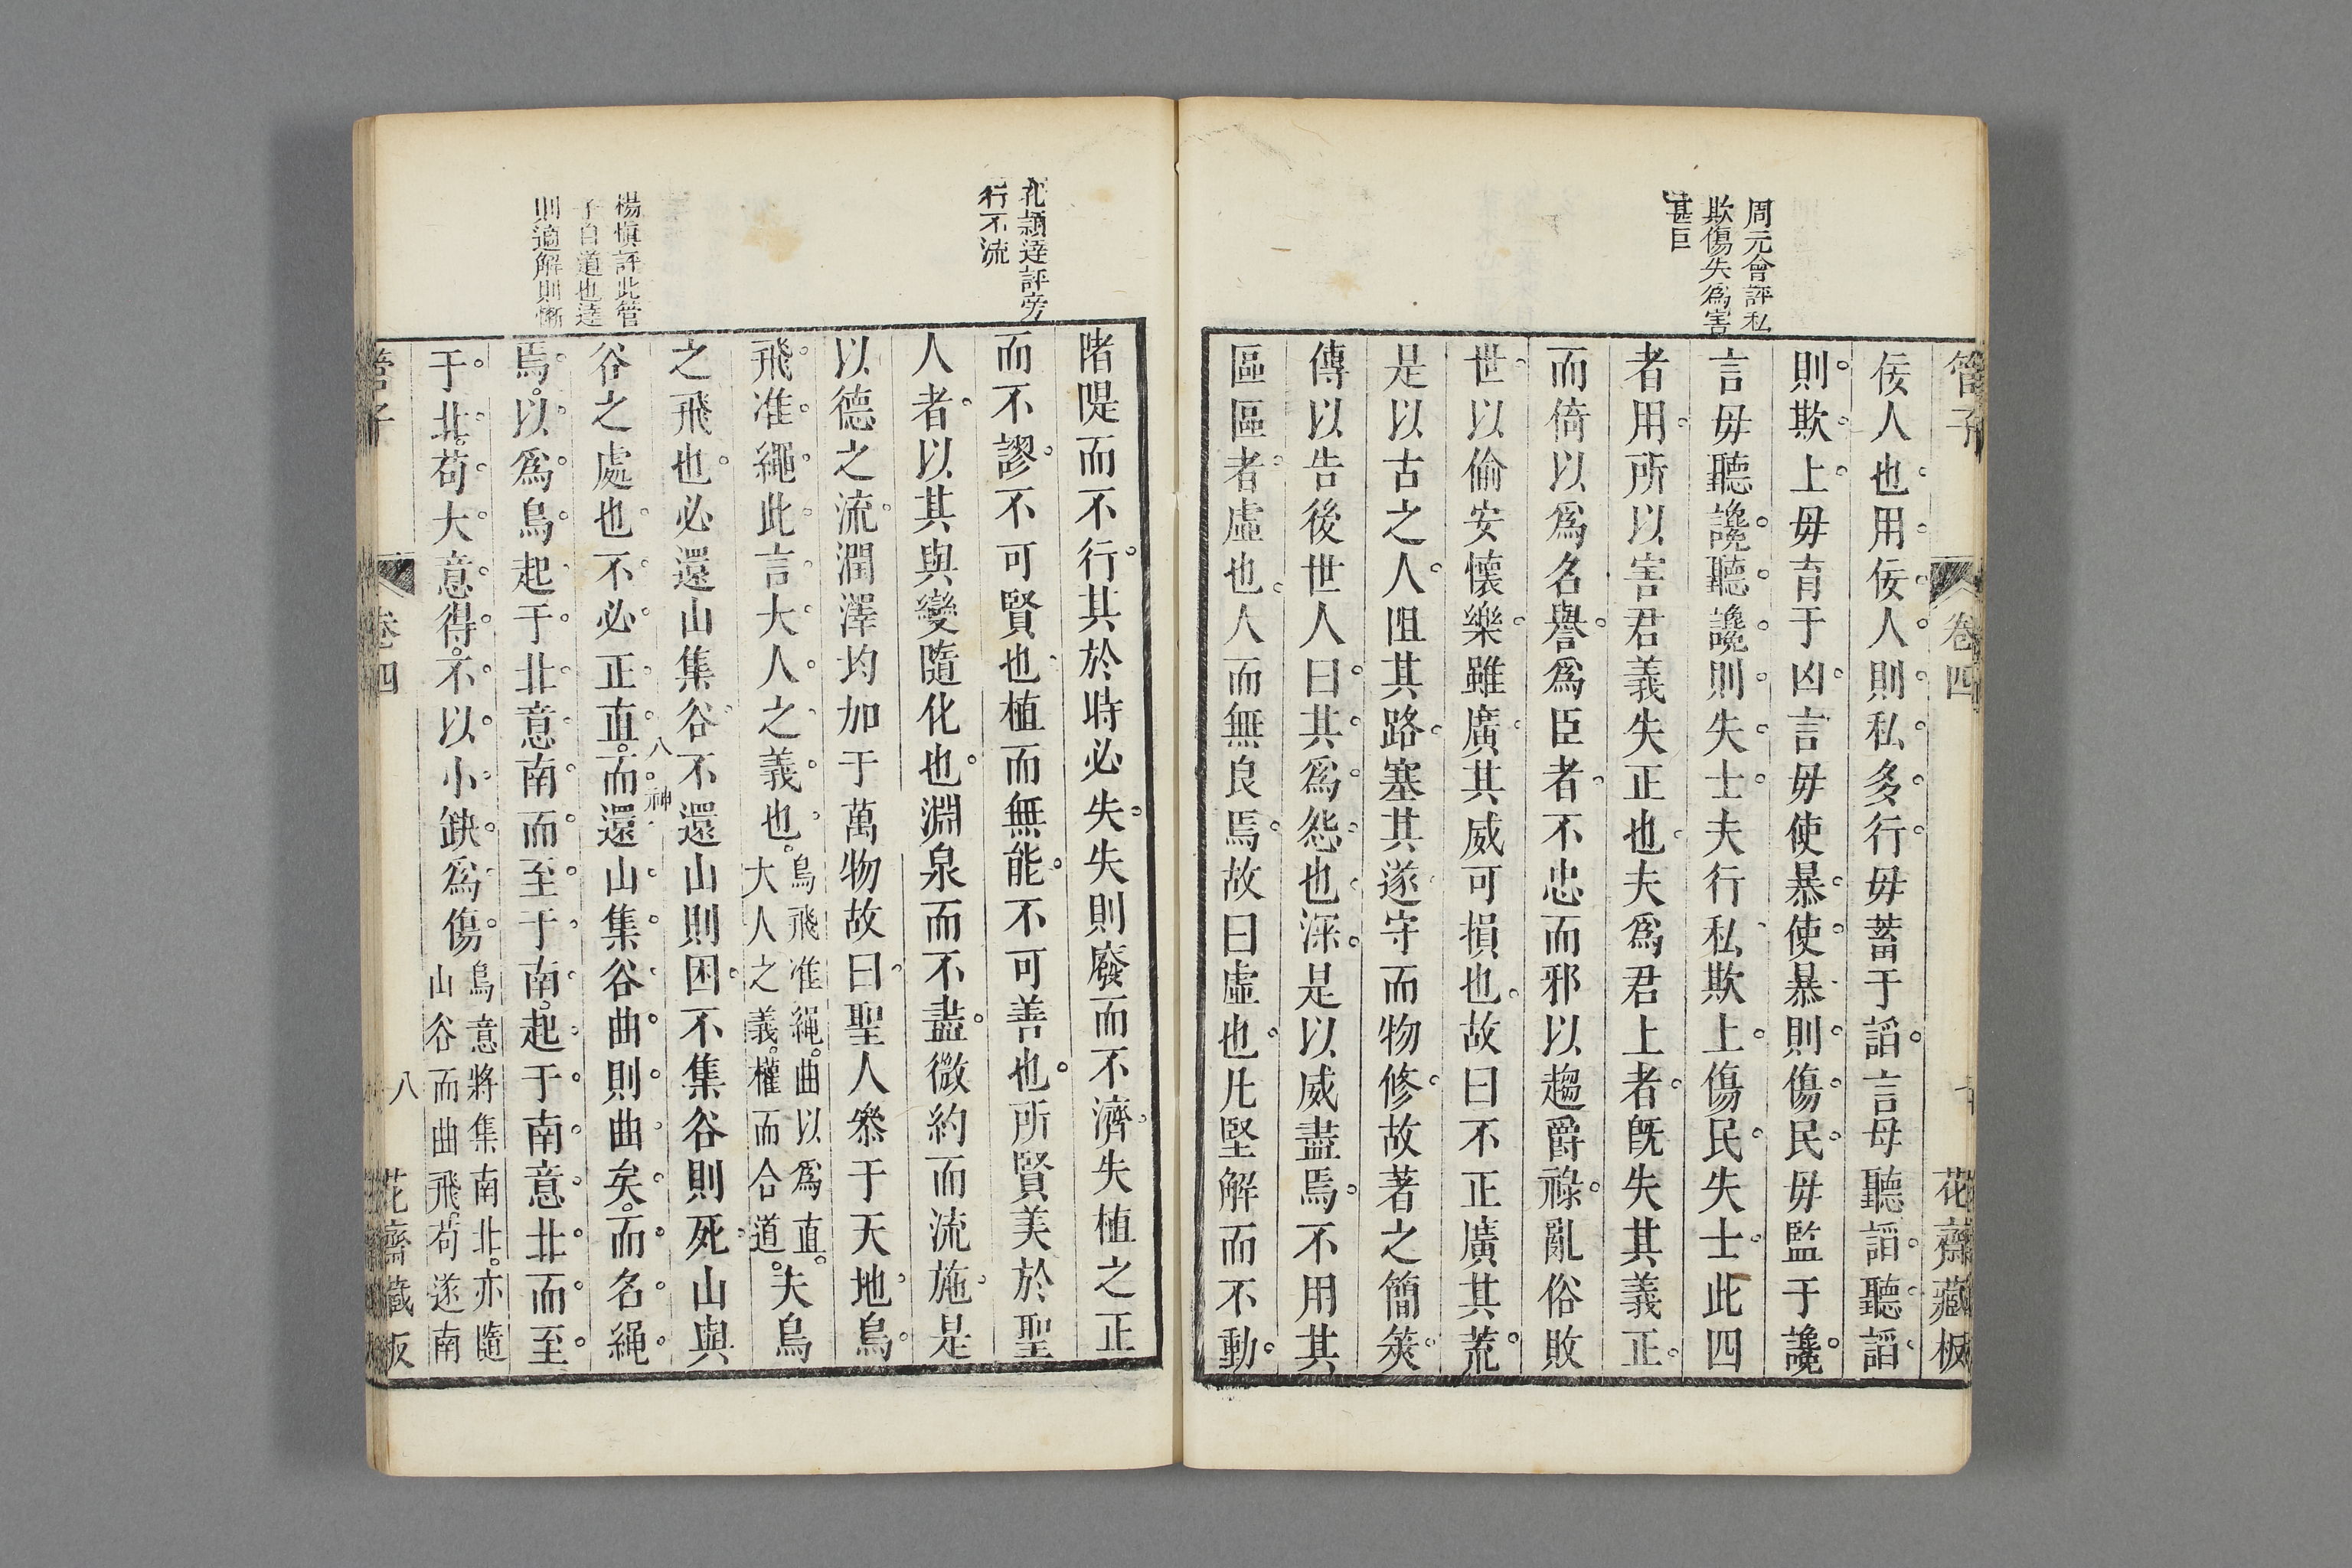 管子
卷四
花齋藏板
周元會評私
欺傷失爲害
甚巨
佞人也用佞人則私多行毋蓄于謟言毋聽謟聽謟
則欺上毋育于凶言毋使暴使暴則傷民毋監于讒
言毋聽讒聽讒則失士夫行私欺上傷民失士此四
者用所以害君義失正也夫爲君上者旣失其義正
而倚以爲名譽爲臣者不忠而邪以趨爵祿亂俗敗
世以偷安懷樂雖廣其威可損也故曰不正廣其荒
是以古之人阻其路塞其遂守而物修故著之簡筴
傳以告後世人曰其爲怨也深是以威盡焉不用其
區區者虛也人而無良焉故曰虛也凡堅解而不動
孔頴達評旁
行不流
楊愼評此管
子自道也達
則適解則慚
陼隄而不行其於時必失失則廢而不濟失植之正
而不謬不可賢也植而無能不可善也所賢美於聖
人者以其與變隨化也淵泉而不盡微約而流施是
以德之流潤澤均加于萬物故曰聖人叅于天地鳥
飛准繩此言大人之義也鳥飛准繩曲以爲直
大人之義權而合道夫鳥
之飛也必還山集谷不還山則困不集谷則死山與
八神
谷之處也不必正直而還山集谷曲則曲矣而名繩
焉以爲鳥起于北意南而至于南起于南意北而至
于北苟大意得不以小缺爲傷鳥意將集南北亦隨
山谷而曲飛苟遂南
管子
卷四
八
花齋藏板